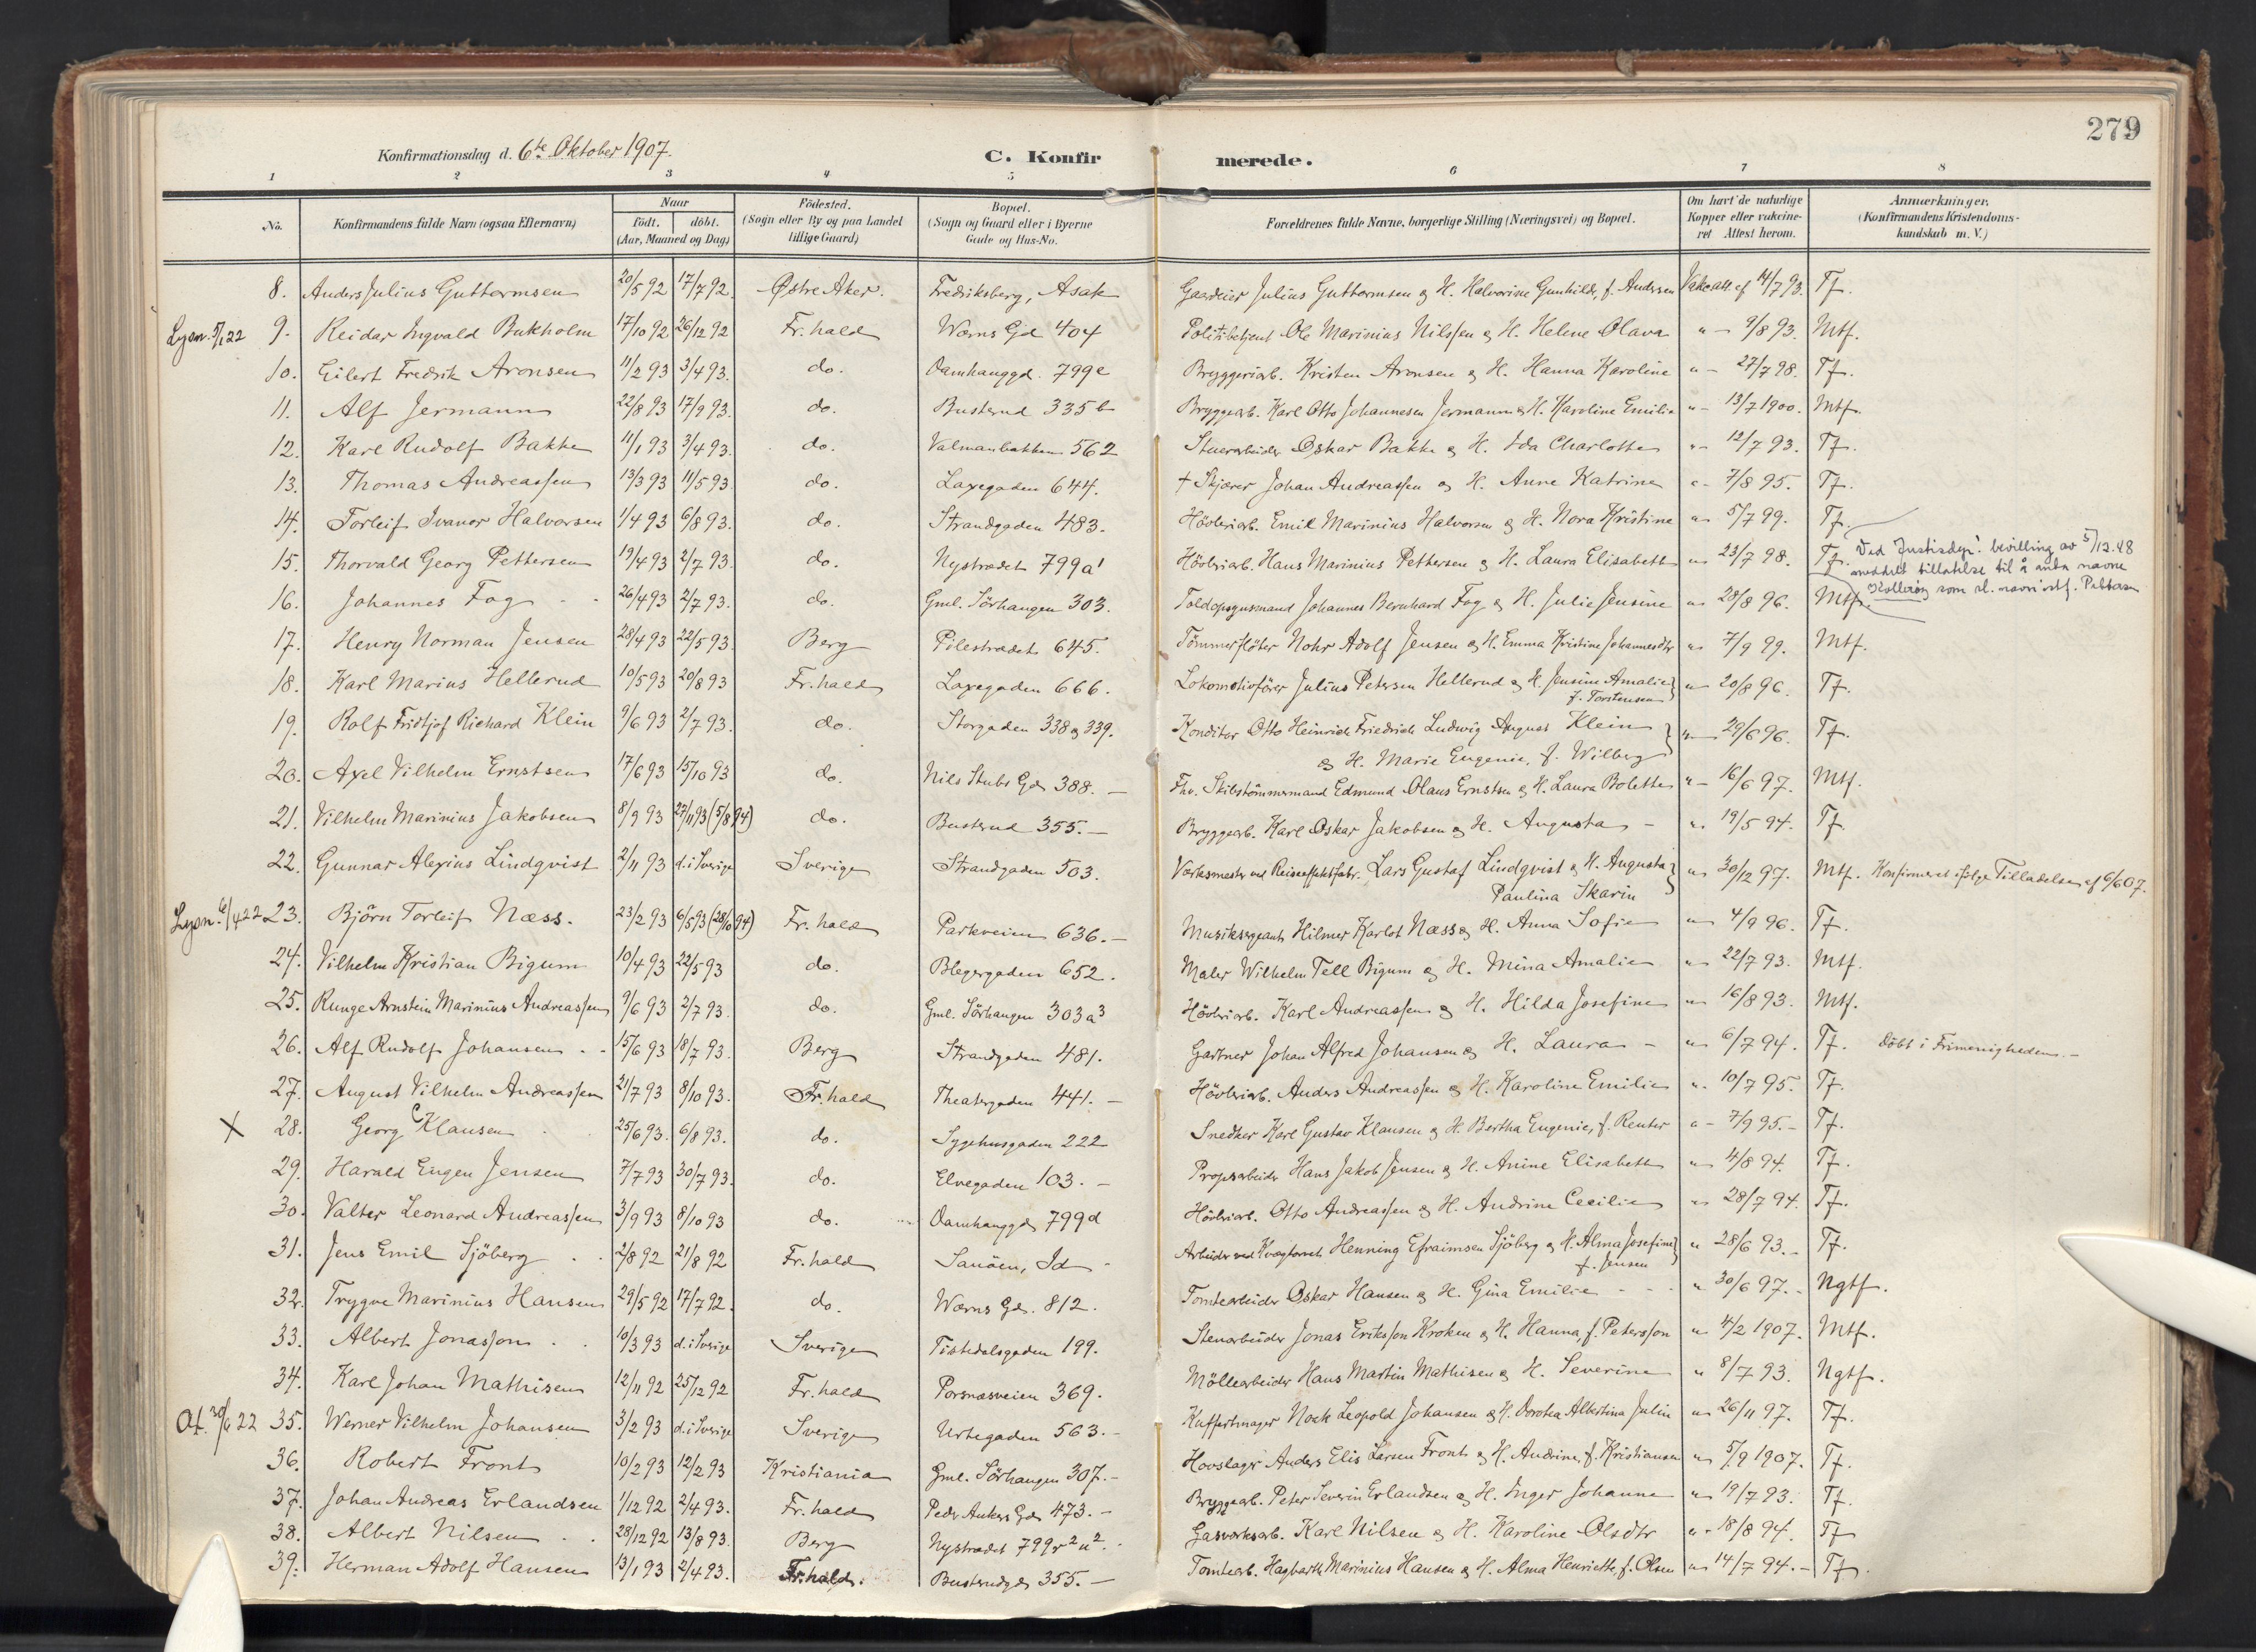 279
Konfirmationsdag d. 6te Oktober 1907.
C. Konfirmerede.
1 2 3 4 5 6 7 8
No. Konfirmandens fulde Navn (ogsaa Efternavn) Naar födt. döbt. (Aar, Maaned og Dag) Födested. (Sogn eller By og paa Landet tillige Gaard) Bopæl. (Sogn og Gaard eller i Byerne Gade og Hus-No. Forældrenes fulde Navne, borgerlige Stilling (Næringsvei) og Bopæl. Om havt de naturlige Kopper eller vakcineret Attest herom. Anmærkninger. (Konfirmandens Kristendomskundskab m. V.)
8. Anders Julius Guttormsen 20/5 92 17/7 92. Østre Aker. Fredriksberg, Asak Gaardeier Julius Guttormsen og H. Halvorine Gunhilde, f. Andersen Vakc att. af 14/7 93. Tf.
Lysn. 5/1 22 9. Reidar Ingvald Bakholm 17/10 92 26/12 92 Fr.hald Wærns Gd 404 Politibetjent Ole Marinius Nilssen og H. Helene Olava " - 9/8 93. Mtf.
10. Eilert Fredrik Aronsen 11/2 93 3/4 93. do. Damhauggd. 799e Bryggeriarb. Kristen Aronsen og H. Hanna Karoline " - 27/7 98. Tf.
11. Alf Jermann 22/8 93 17/9 93. do. Busterud 335b Bryggearb. Karl Otto Johannesen Jermann og H. Karoline Emilie " - 13/7 1900. Mtf.
12. Karl Rudolf Bakke 11/1 93 3/4 93. do. Valmanbakken 562 Stuerarbeider Oskar Bakke og H. Ida Charlotte " - 12/7 93. Tf.
13. Thomas Andreassen 13/3 93 11/5 93 do. Laxegaden 644. † Skjærer Johan Andreassen og H. Anne Katrine " - 7/8 95. Tf.
14. Torleif Ivanor Halvorsen 1/4 93 6/8 93. do. Strandgaden 483. Hövleriarb. Emil Marinius Halvorsen og H. Nora Kristine " - 5/7 99. Tf.
15. Thorvald Georg Pettersen 19/4 93 2/7 93. do. Nystrædet 799a1 Hövleriarb. Hans Marinius Pettersen og H. Laura Elisabeth " - 23/7 98. Tf. Ved Justisdep. bevilling av 5/12.48
meddelt tillatelse til å anta navne
Kollerøy som sl. navn istf. Pettersen
16. Johannes Fog - - 26/4 93 2/7 93. do. Gml. Sörhaugen 303. Toldopsynsmand Johannes Bernhard Fog og H. Julie Jensine " - 28/8 96. Mtf.
17. Henry Norman Jensen 28/4 93 22/5 93. Berg Pilestrædet 645. Tömmerflöter Nohr Adolf Jensen og H. Emma Kristine Johannesdtr " - 7/9 99. Mtf.
18. Karl Marius Hellerud 10/5 93 20/8 93 Fr.hald Laxegaden 666. Lokomotivförer Julius Petersen Hellerud og H. Jensine Amalie } " - 20/8 96. Tf.
f. Torstensen
19. Rolf Fridtjof Richard Klein 9/6 93 2/7 93. do. Storgaden 338 og 339. Konditor Otto Heinrich Friedrich Ludwig August Klein } " - 29/6 96. Tf.
og H. Marie Eugenie, f. Wilberg
20. Axel Vilhelm Ernstsen 17/6 93 15/10 93 do. Nils Stubs Gd 388. - Fhv. Skibstömmermand Edmund Olaus Ernstsen og H. Laura Bolette " - 16/6 97. Mtf.
21. Vilhelm Marinius Jakobsen 8/9 93 27/11 93 (5/8 94) do. Busterud 355. - Bryggearb. Karl Oskar Jakobsen og H. Augusta - " - 19/5 94. Tf.
22. Gunnar Alexius Lindqvist 2/11 93 d. i Sverige Sverige Strandgaden 503. Værksmester ved Reiseeffektfabr. Lars Gustaf Lindqvist og H. Augusta } " - 30/12 97. Mtf. Konfirmeret ifølge Tilladelse af 6/6 07.
Paulina Skarin
Lysn. 6/4 22 23. Björn Torleif Næss. 23/2 93 6/5 93 (28/10 94) Fr. hald Parkveien 636. - Musiksergeant Hilmer Karlot Næss og H. Anna Sofie " - 4/9 96. Tf.
24. Vilhelm Kristian Bigum 10/4 93 22/5 93 do. Blegergaden 652. Maler Wilhelm Tell Bigum og H. Mina Amalie " - 22/7 93. Mtf.
25. Runge Arnstein Marinius Andreassen 9/6 93 2/7 93. do. Gml. Sörhaugen 303a3 Hövleriarb. Karl Andreassen og H. Hilda Josefine " - 16/8 93. Mtf.
26. Alf Rudolf Johansen - - 15/6 93 18/7 93. Berg Strandgaden 481. Gartner Johan Alfred Johansen og H. Laura - " - 6/7 94. Tf. Döbt i Frimenigheden. -
27. August Vilhelm Andreassen 21/7 93 8/10 93. Fr. hald Theatergaden 441. - Hövleriarb. Anders Andreassen og H. Karoline Emilie " - 10/7 95. Tf.
X 28. Georg Klausen C 25/6 93. 6/8 93. do. Sygehusgaden 222 Snedker Karl Gustav Klausen og H. Bertha Eugenie, f. Reuter " - 7/9 95. - Tf.
29. Harald Eugen Jensen 7/7 93 30/7 93. do. Elvegaden 103. - Propsarbeider Hans Jakob Jensen og H. Anine Elisabeth " - 4/8 94. Tf.
30. Valter Leonard Andreassen 3/9 93 8/10 93 do. Damhauggd 799d Hövleriarb. Otto Andreassen og H. Andrine Cecilie " - 28/7 94. Tf.
31. Jens Emil Sjöberg - - 2/8 92 21/8 92 Fr. hald Sanöen, Id - Arbeider ved Kvægtorvet Henning Efraimsen Sjöberg og H. Alma Josefine } " 28/6 93. - Tf.
f. Jensen
32. Trygve Marinius Hansen 29/5 92 17/7 92. do. Wærns Gd. 812. Tomtearbeider Oskar Hansen og H. Gina Emilie - - - " 30/6 97. - Ngtf.
33. Albert Jonasson - - 10/3 93 d. i Sverige Sverige Tistedalsgaden 199. Stenarbeider Jonas Eriksson Kroken og H. Hanna, f. Petersson " 4/2 1907. Mtf.
34. Karl Johan Mathisen 12/11 92 25/12 92 Fr. hald Porsnæsveien 369. Möllearbeider Hans Martin Mathisen og H. Severine " 8/7 93. Ngtf.
At. 30/6 22 35. Werner Vilhelm Johansen 3/2 93 d. i Sverige Sverige Urtegaden 563. - Kuffertmager Noak Leopold Johansen og H. Dorotea Albertina Julin " - 26/11 97. Tf.
36. Robert Front 10/2 93 12/2 93 Kristiania Gml. Sörhaugen 307. - Hovslager Anders Elis Larsen Front og H. Andrine, f. Kristiansen " - 5/9 1907. Tf.
37. Johan Andreas Erlandsen 1/12 92 2/4 93. Fr. hald Peder Ankers Gd 473. - Bryggearb. Peter Severin Erlandsen og H. Inger Johanne " - 19/7 93. Tf.
38. Albert Nilsen - - 28/12 92 13/8 93. Berg Nystrædet 799r2u2. - Gasværksarb. Karl Nilsen og H. Karoline Olsdtr " - 18/8 94. Tf
39. Herman Adolf Hansen 13/1 93 2/4 93. Fr. hald. Busterudgd 355. - Tomtearb. Hagbarth Marinius Hansen og H. Alma Henriette, f. Olsen " - 14/7 94. - Tf.